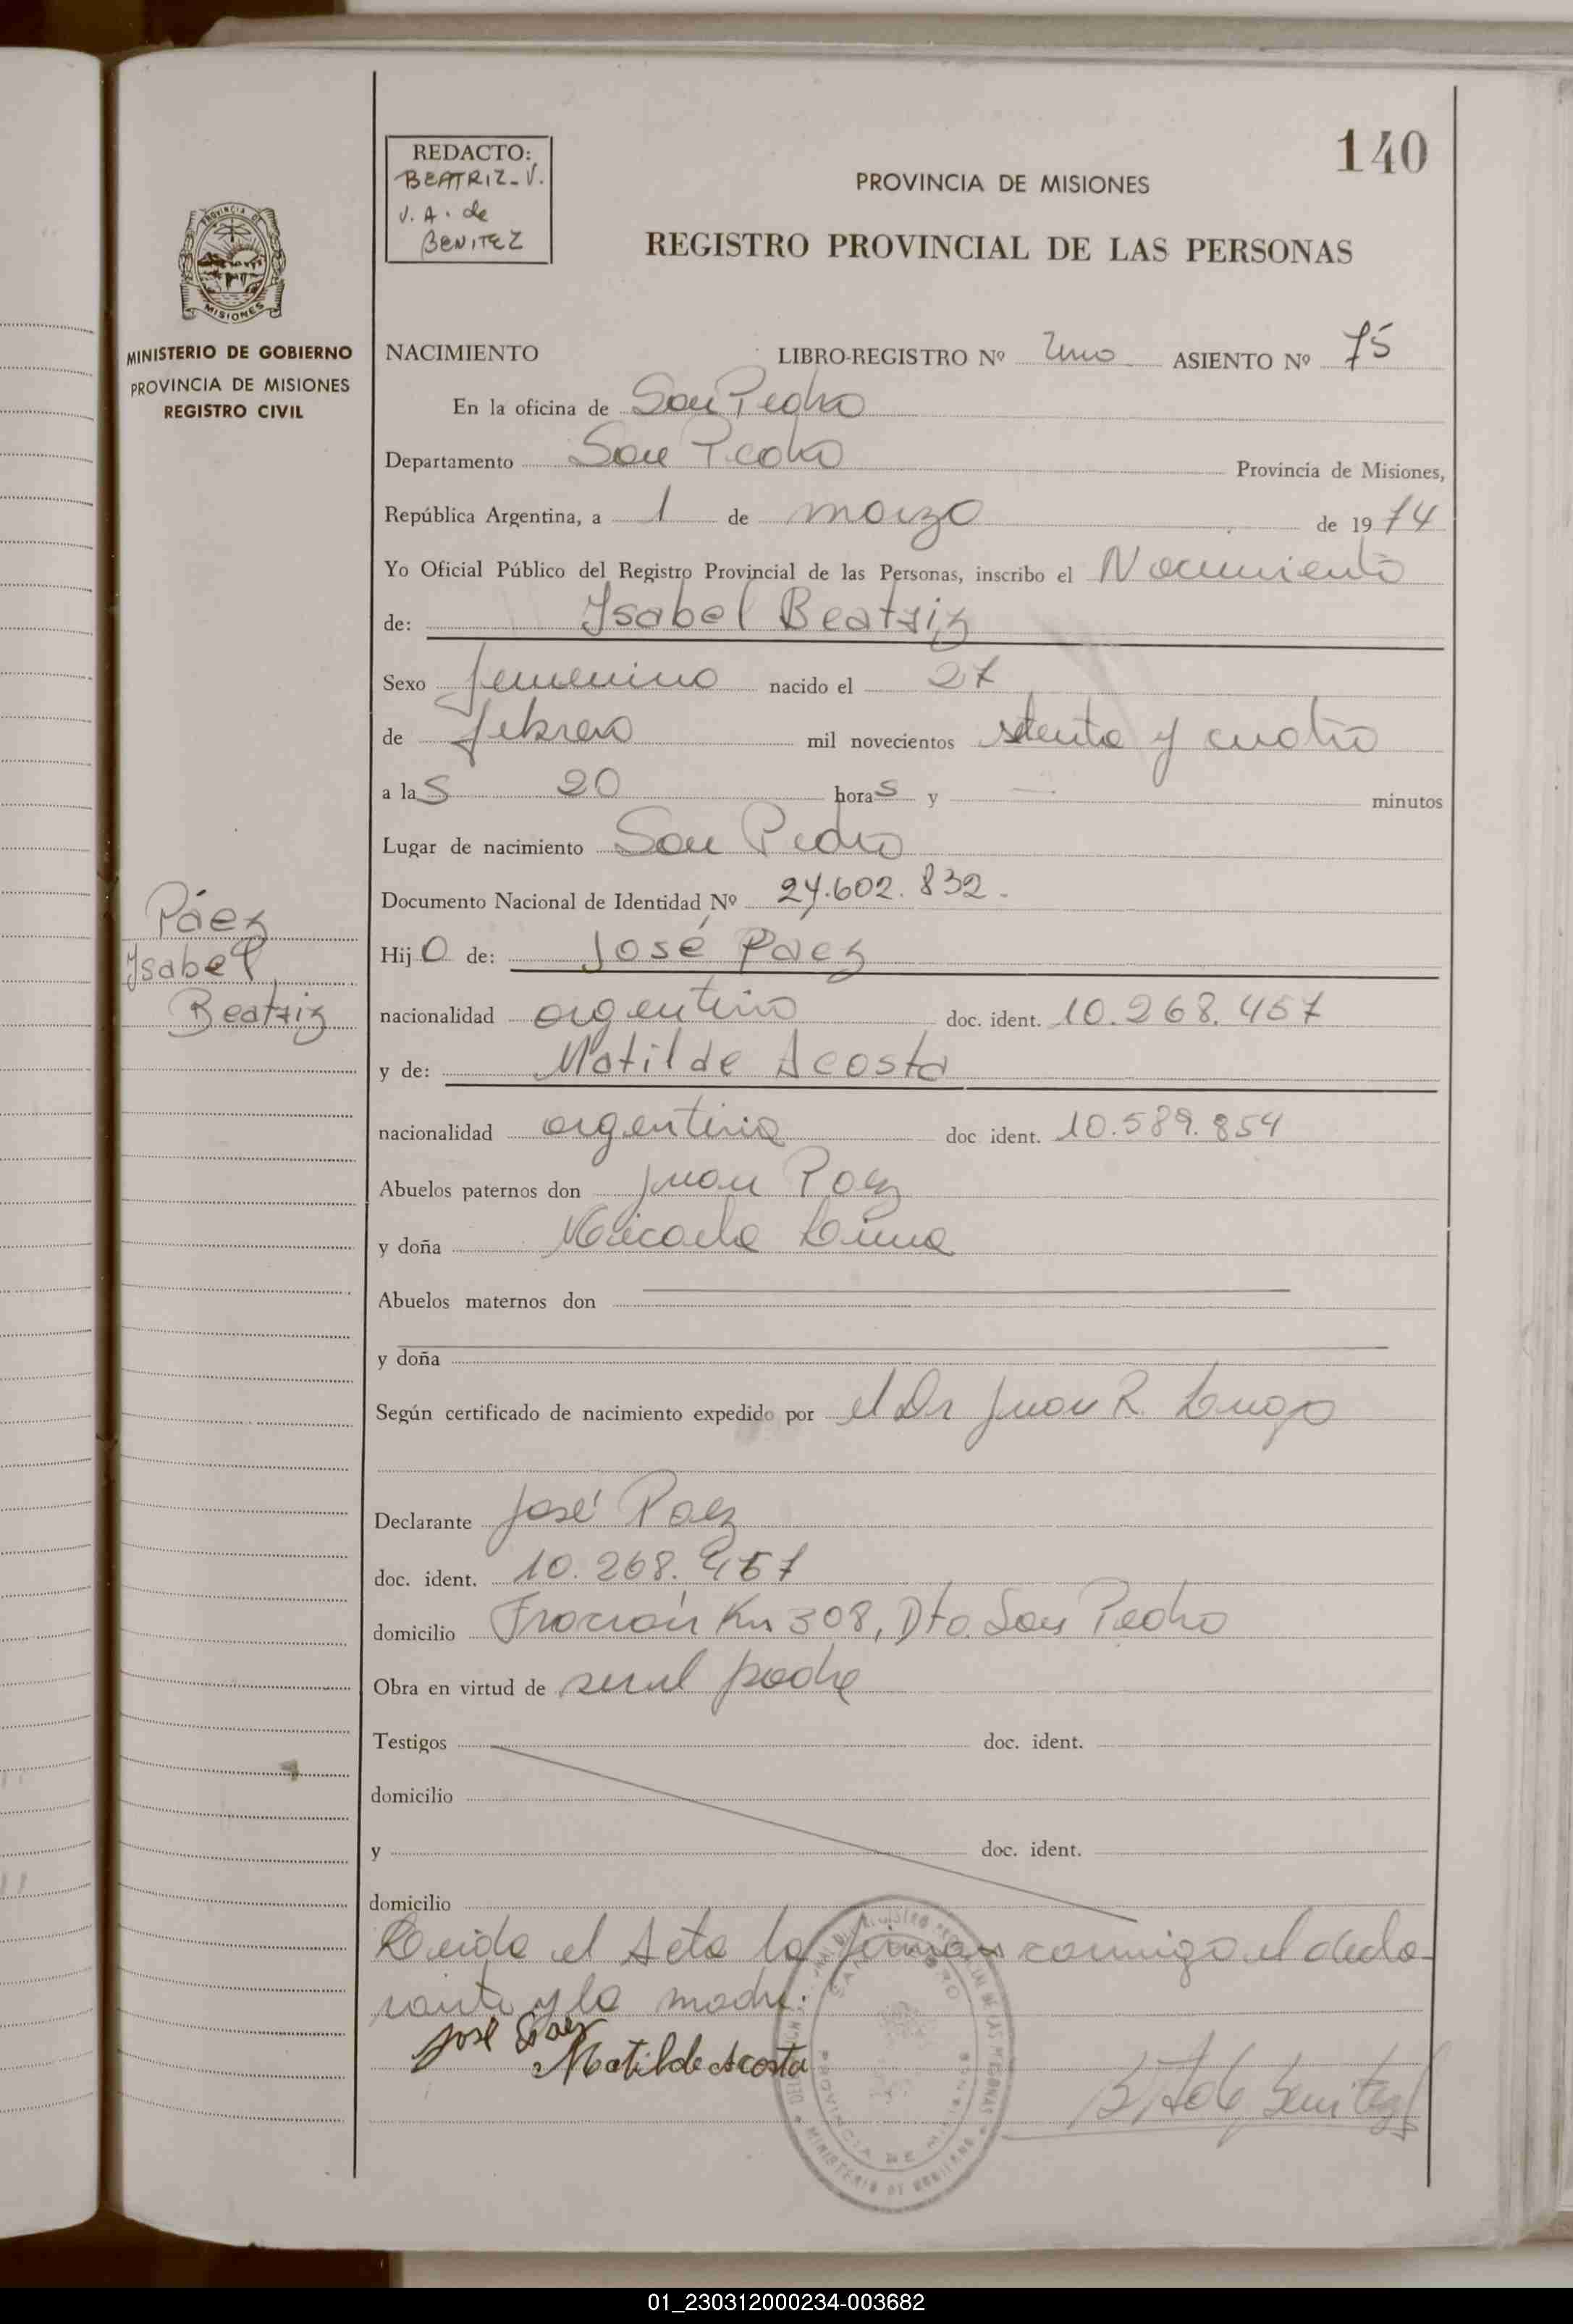 140
REDACTO:
BEATRIZ-V.
V. A. de
BENITEZ
PROVINCIA DE MISIONES
REGISTRO PROVINCIAL DE LAS PERSONAS
PROVINCIA DE
MISIONES
MINISTERIO DE GOBIERNO
PROVINCIA DE MISIONES
REGISTRO CIVIL
Páez
Isabel
Beatriz
NACIMIENTO LIBRO-REGISTRO Nº Uno ASIENTO Nº 75
En la oficina de San Pedro
Departamento San Pedro Provincia de Misiones,
República Argentina, a 1 de marzo de 1974
Yo Oficial Público del Registro Provincial de las Personas, inscribo el Nacimiento
de: Isabel Beatriz
Sexo femenino nacido el 27
de febrero mil novecientos setenta y cuatro
a las 20 horas y — minutos
Lugar de nacimiento San Pedro
Documento Nacional de Identidad Nº 24.602.832.
Hijo de: José Paez
nacionalidad argentino doc. ident. 10.268.457
y de: Matilde Acosta
nacionalidad argentina doc ident. 10.589.854
Abuelos paternos don Juan Paez
y doña Micaela Lima
Abuelos maternos don
y doña
Según certificado de nacimiento expedido por el Dr Juan R. Lugo
Declarante José Paez
doc. ident. 10.268.457
domicilio Fracrán Km 308, Dto. San Pedro
Obra en virtud de ser el padre
Testigos doc. ident.
domicilio
y doc. ident.
domicilio
Leida el Acta la firman conmigo el decla-
rante y la madre.
José Paez
Matilde Acosta
PROVINCIA DE MISIONES
MINISTERIO DE GOBIERNO
de Benitez
01_230312000234-003682